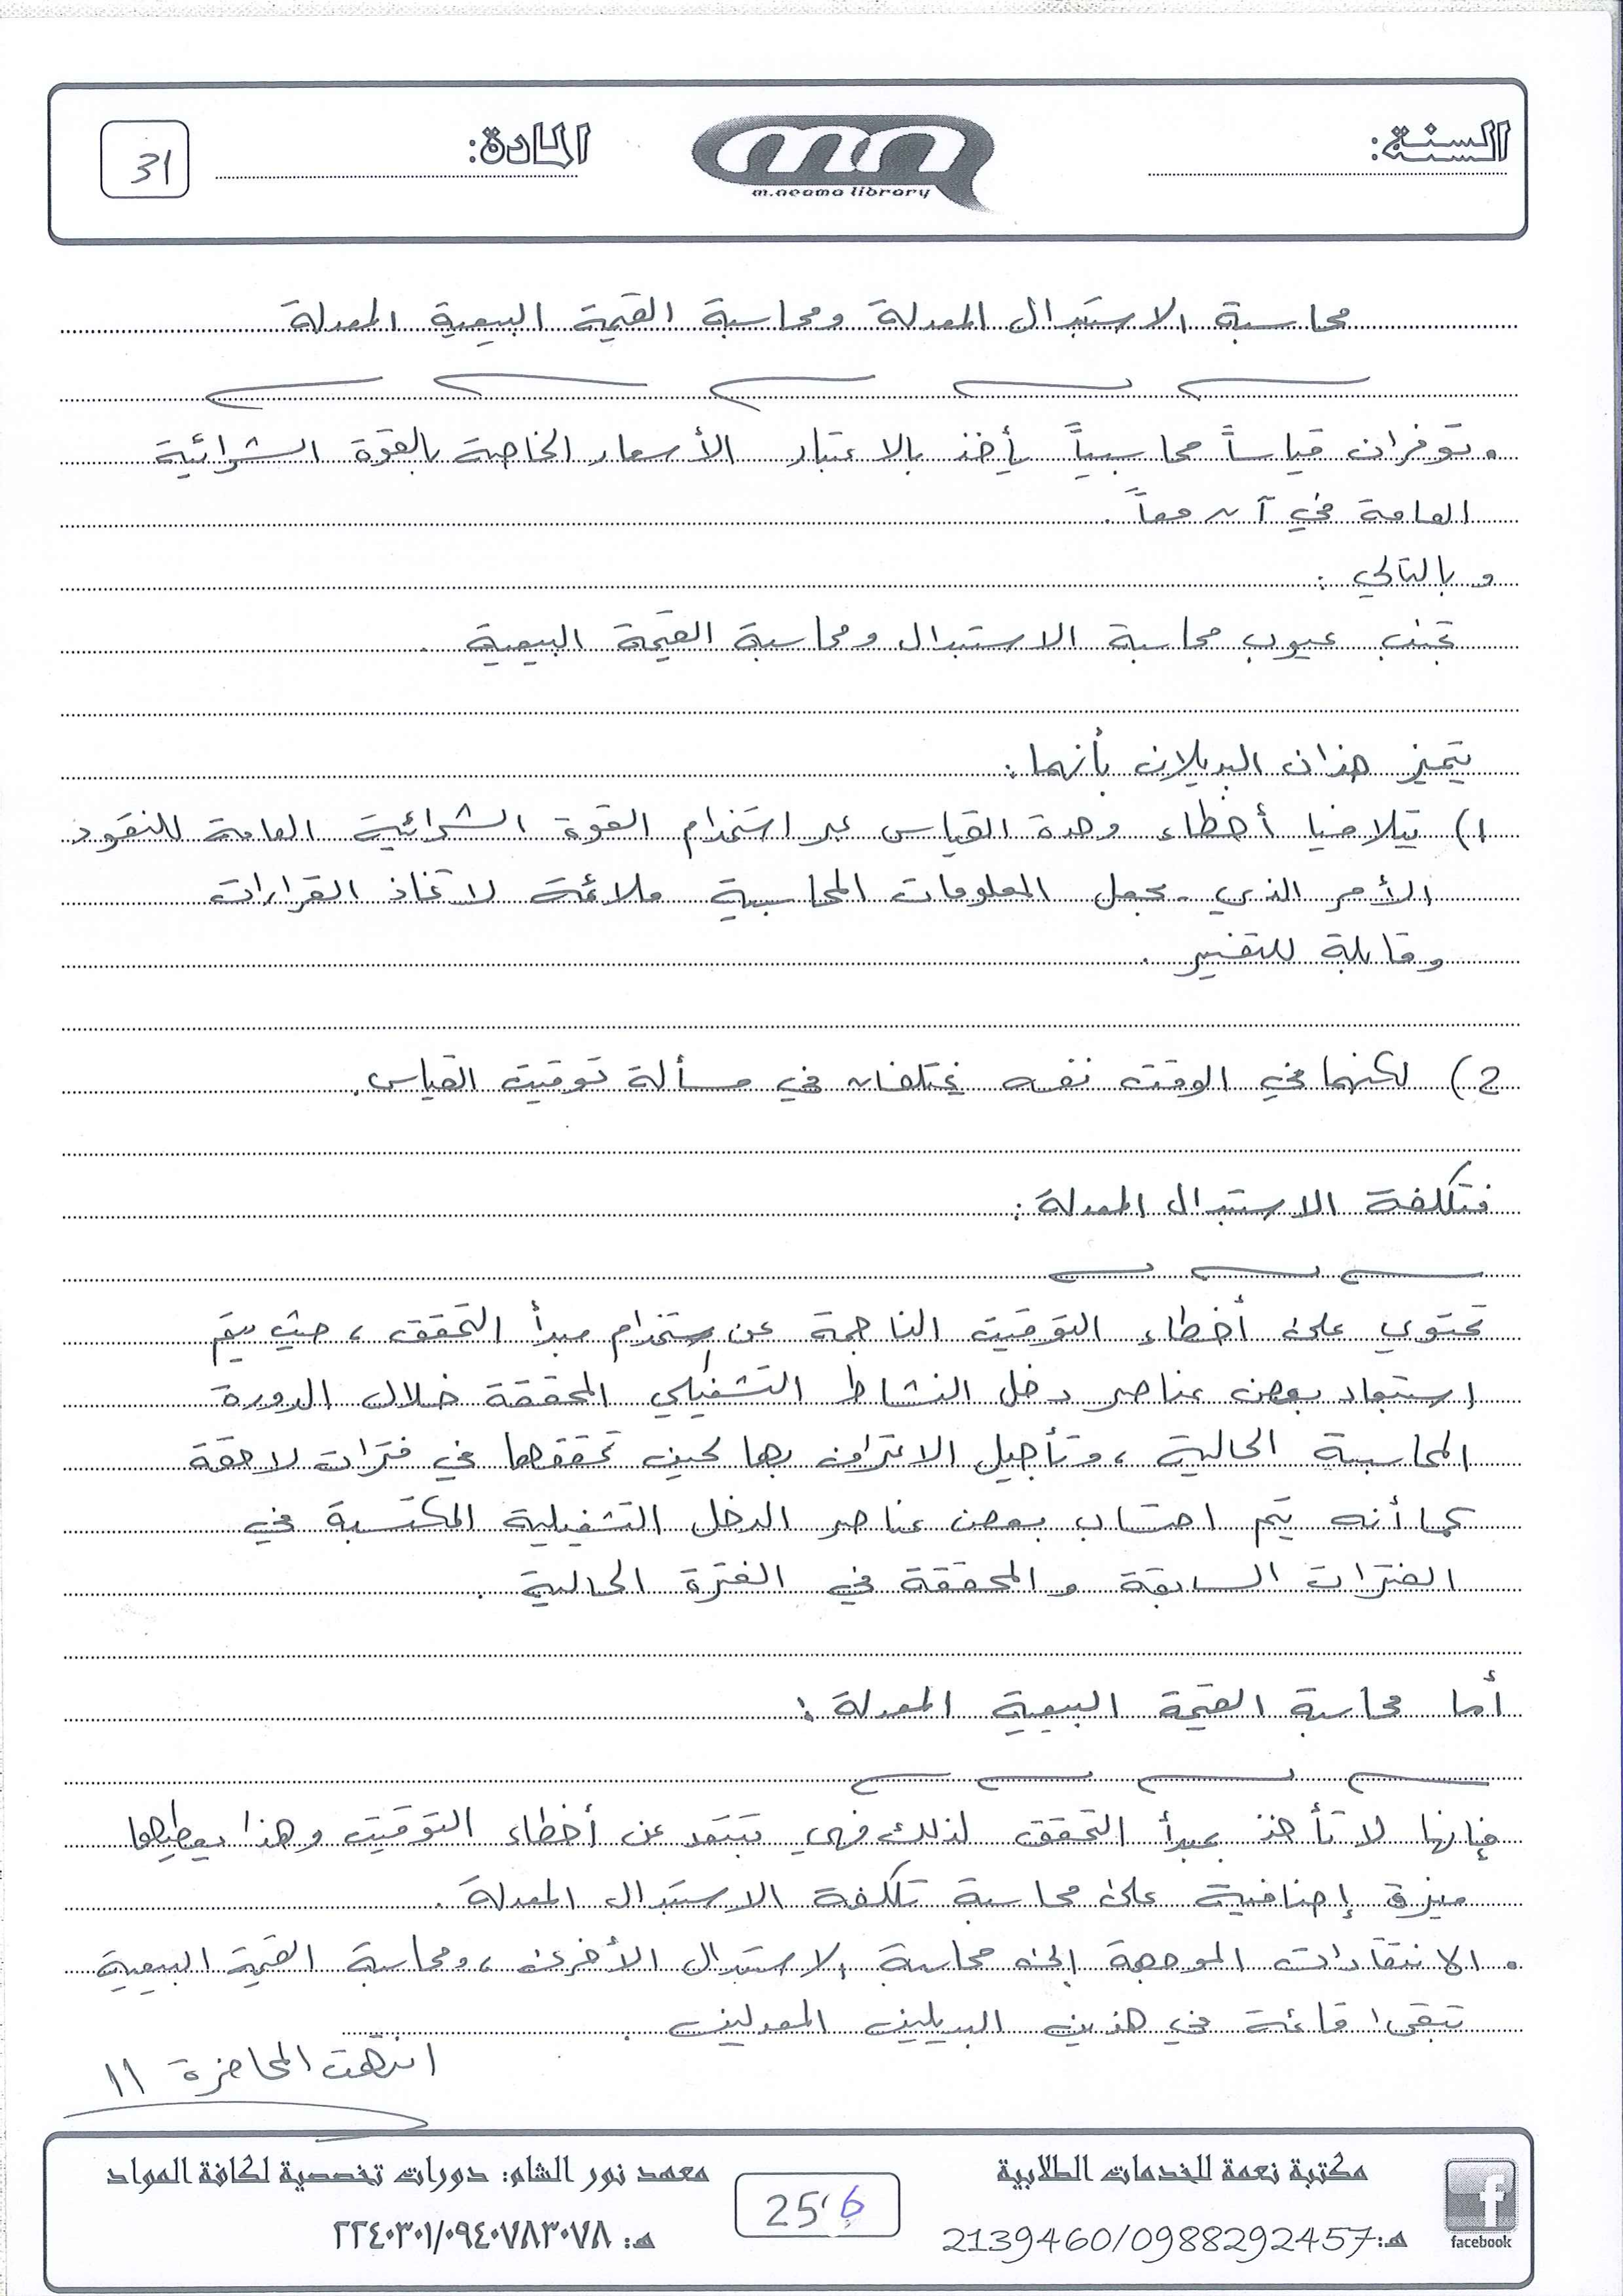 السنة:
m.neama library
المادة:
31
محاسبة الاستبدال المعدلة ومحاسبة القيمة البيعية المعدلة
• توفران قياساً محاسبياً يأخذ بالاعتبار الأسعار الخاصة بالقوة الشرائية
العامة في آن معاً.
وبالتالي:
تجنب عيوب محاسبة الاستبدال ومحاسبة القيمة البيعية.
يتميز هذان البديلان بأنهما:
1) يتلافيا أخطاء وحدة القياس عبر استخدام القوة الشرائية العامة للنقود
الأمر الذي يجعل المعلومات المحاسبية ملائمة لاتخاذ القرارات
وقابلة للتفسير.
2) لكنهما في الوقت نفسه يختلفان في مسألة توقيت القياس.
فتكلفة الاستبدال المعدلة:
تحتوي على أخطاء التوقيت الناجمة عن استخدام مبدأ التحقق، حيث يتم
استبعاد بعض عناصر دخل النشاط التشغيلي المحققة خلال الدورة
المحاسبية الحالية، وتأجيل الاعتراف بها لحين تحققها في فترات لاحقة
كما أنه يتم احتساب بعض عناصر الدخل التشغيلية المكتسبة في
الفترات السابقة والمحققة في الفترة الحالية.
أما محاسبة القيمة البيعية المعدلة:
فإنها لا تأخذ بمبدأ التحقق لذلك فهي تبتعد عن أخطاء التوقيت وهذا يعطيها
ميزة إضافية على محاسبة تكلفة الاستبدال المعدلة.
• الانتقادات الموجهة إلى محاسبة الاستبدال الأخرى، ومحاسبة القيمة البيعية
تبقى قائمة في هذين البديلين المعدلين.
انتهت المحاضرة 11
مكتبة نعمة للخدمات الطلابية
هـ: 2139460/0988292457
facebook
256
معهد نور الشام: دورات تخصصية لكافة المواد
هـ: ٢٢٤٠٣٠١/٠٩٤٠٧٨٣٠٧٨